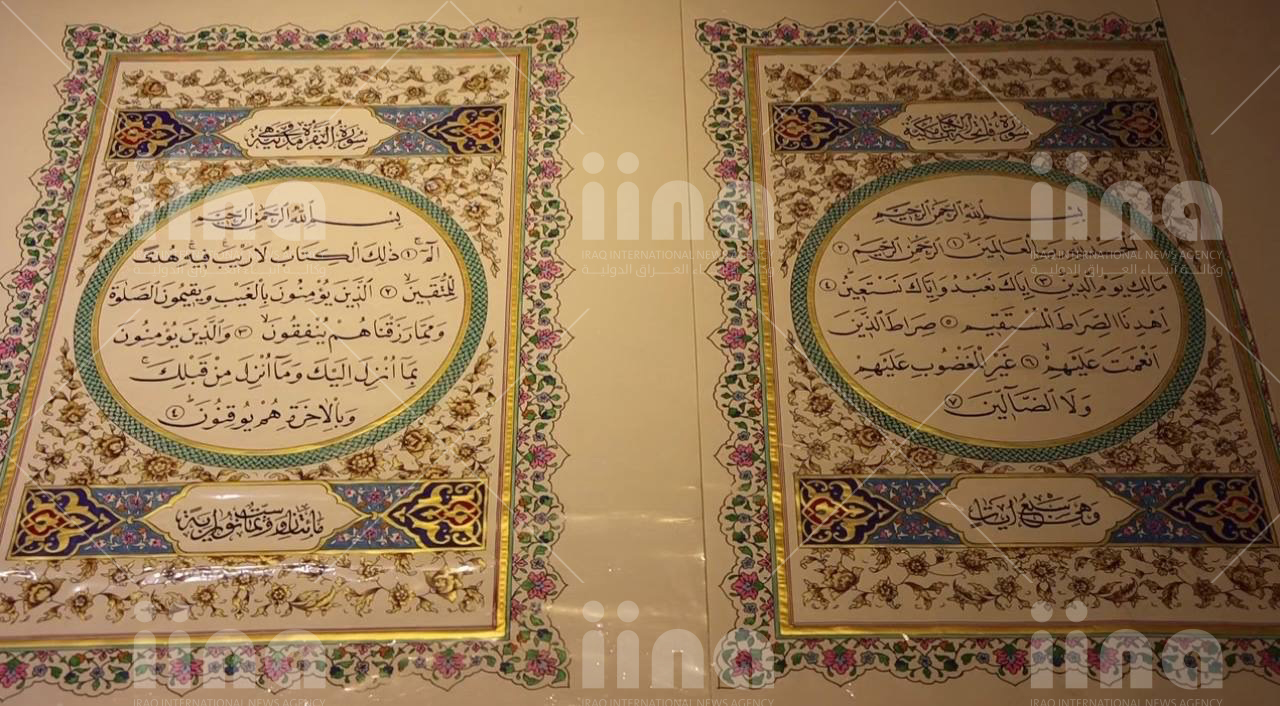 سورة فاتحة الكتاب مكية
بسم الله الرحمن الرحيم
الحمد لله رب العالمين ١ الرحمن الرحيم ٢
مالك يوم الدين ٣ اياك نعبد واياك نستعين ٤
اهدنا الصراط المستقيم ٥ صراط الذين
انعمت عليهم ٦ غير المغضوب عليهم
ولا الضالين ٧
وهي سبع ايات
سورة البقرة مدنية وهي
بسم الله الرحمن الرحيم
الم ١ ذلك الكتاب لا ريب فيه هدى
للمتقين ٢ الذين يؤمنون بالغيب ويقيمون الصلوة
ومما رزقناهم ينفقون ٣ والذين يؤمنون
بما انزل اليك وما انزل من قبلك
وبالاخرة هم يوقنون ٤
مائتان وست وثمانون اية
iina
IRAQ INTERNATIONAL NEWS AGENCY
وكالة انباء العراق الدولية
iina
IRAQ INTERNATIONAL NEWS AGENCY
وكالة انباء العراق الدولية
iina
IRAQ INTERNATIONAL NEWS AGENCY
وكالة انباء العراق الدولية
iina
IRAQ INTERNATIONAL NEWS AGENCY
iina
IRAQ INTERNATIONAL NEWS AGENCY
iina
IRAQ INTERNATIONAL NEWS AGENCY